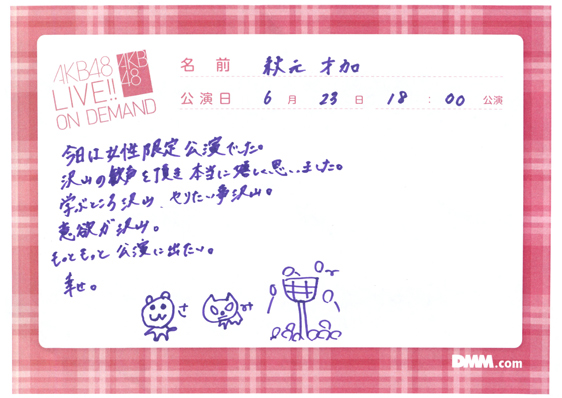 AKB48
LIVE!!
ON DEMAND
AKB
48
名前 秋元才加
公演日 6月23日 18:00公演
今日は女性限定公演でした。
沢山の歓声を頂き本当に嬉しく思いました。
学ぶところ沢山、やりたい事沢山。
意欲が沢山。
もっともっと公演に出たい。
幸せ。
さ
み
DMM.com